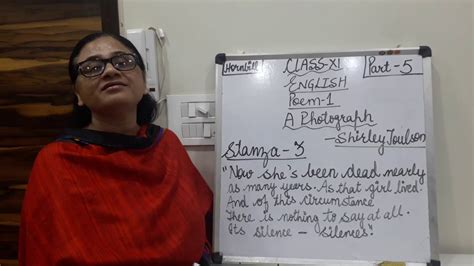 Hornbill
CLASS-XI
Part-5
ENGLISH
Poem-1
A Photograph
-Shirley Toulson
Stanza-3
"Now she's been dead nearly
as many years. As that girl lived.
And of this circumstance
There is nothing to say at all.
Its silence - silences".